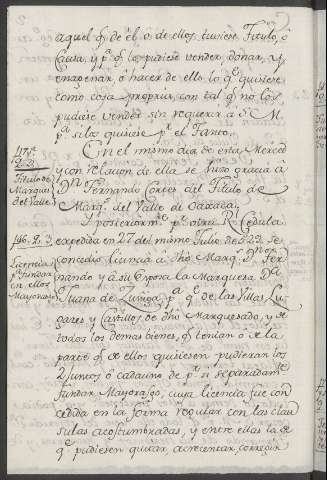 aquel q̃ de él o de ellos tuviere Titulo, ó
Causa, y pª. q̃ los pudiese vender, donar, y
enagenar, ó hacer de ello lo q̃ quisiere
como cosa propria, con tal q̃ no los
pudiese vender sin requerir a S. M.
pª. si los quisiese pʳ. el Tanto.
En el mismo dia de esta Merced
y con relacion de ella se hizo gracia à
Dⁿ. Fernando Cortes del Titulo de
Marqˢ. del Valle de Oaxaca.
Titulo de
Marques
del Valle
Y posteriormᵗᵉ. pʳ. otra Rˡ. Cedula
expedida en 27 del mismo Julio de 529 se
concedio licencia à dho Marqˢ. Dⁿ. Fer-
nando y à su Esposa la Marquesa Dª.
Juana de Zuñiga pª. q̃ de las Villas Lu-
gares y Castillos de dho Marquesado, y de
todos los demas bienes, q̃ tenian ó de la
parte q̃ de ellos quisiesen pudieran los
2 juntos ó cada uno de pʳ. si separadamᵗᵉ.
fundar Mayorazgo, cuya licencia fue con-
cedida en la forma regular con las clau
sulas acostumbradas, y entre ellas la de
q̃ pudiesen quitar, acrecentar, corregir
Licencia
pª. fundar
en ellos
Mayorazgo